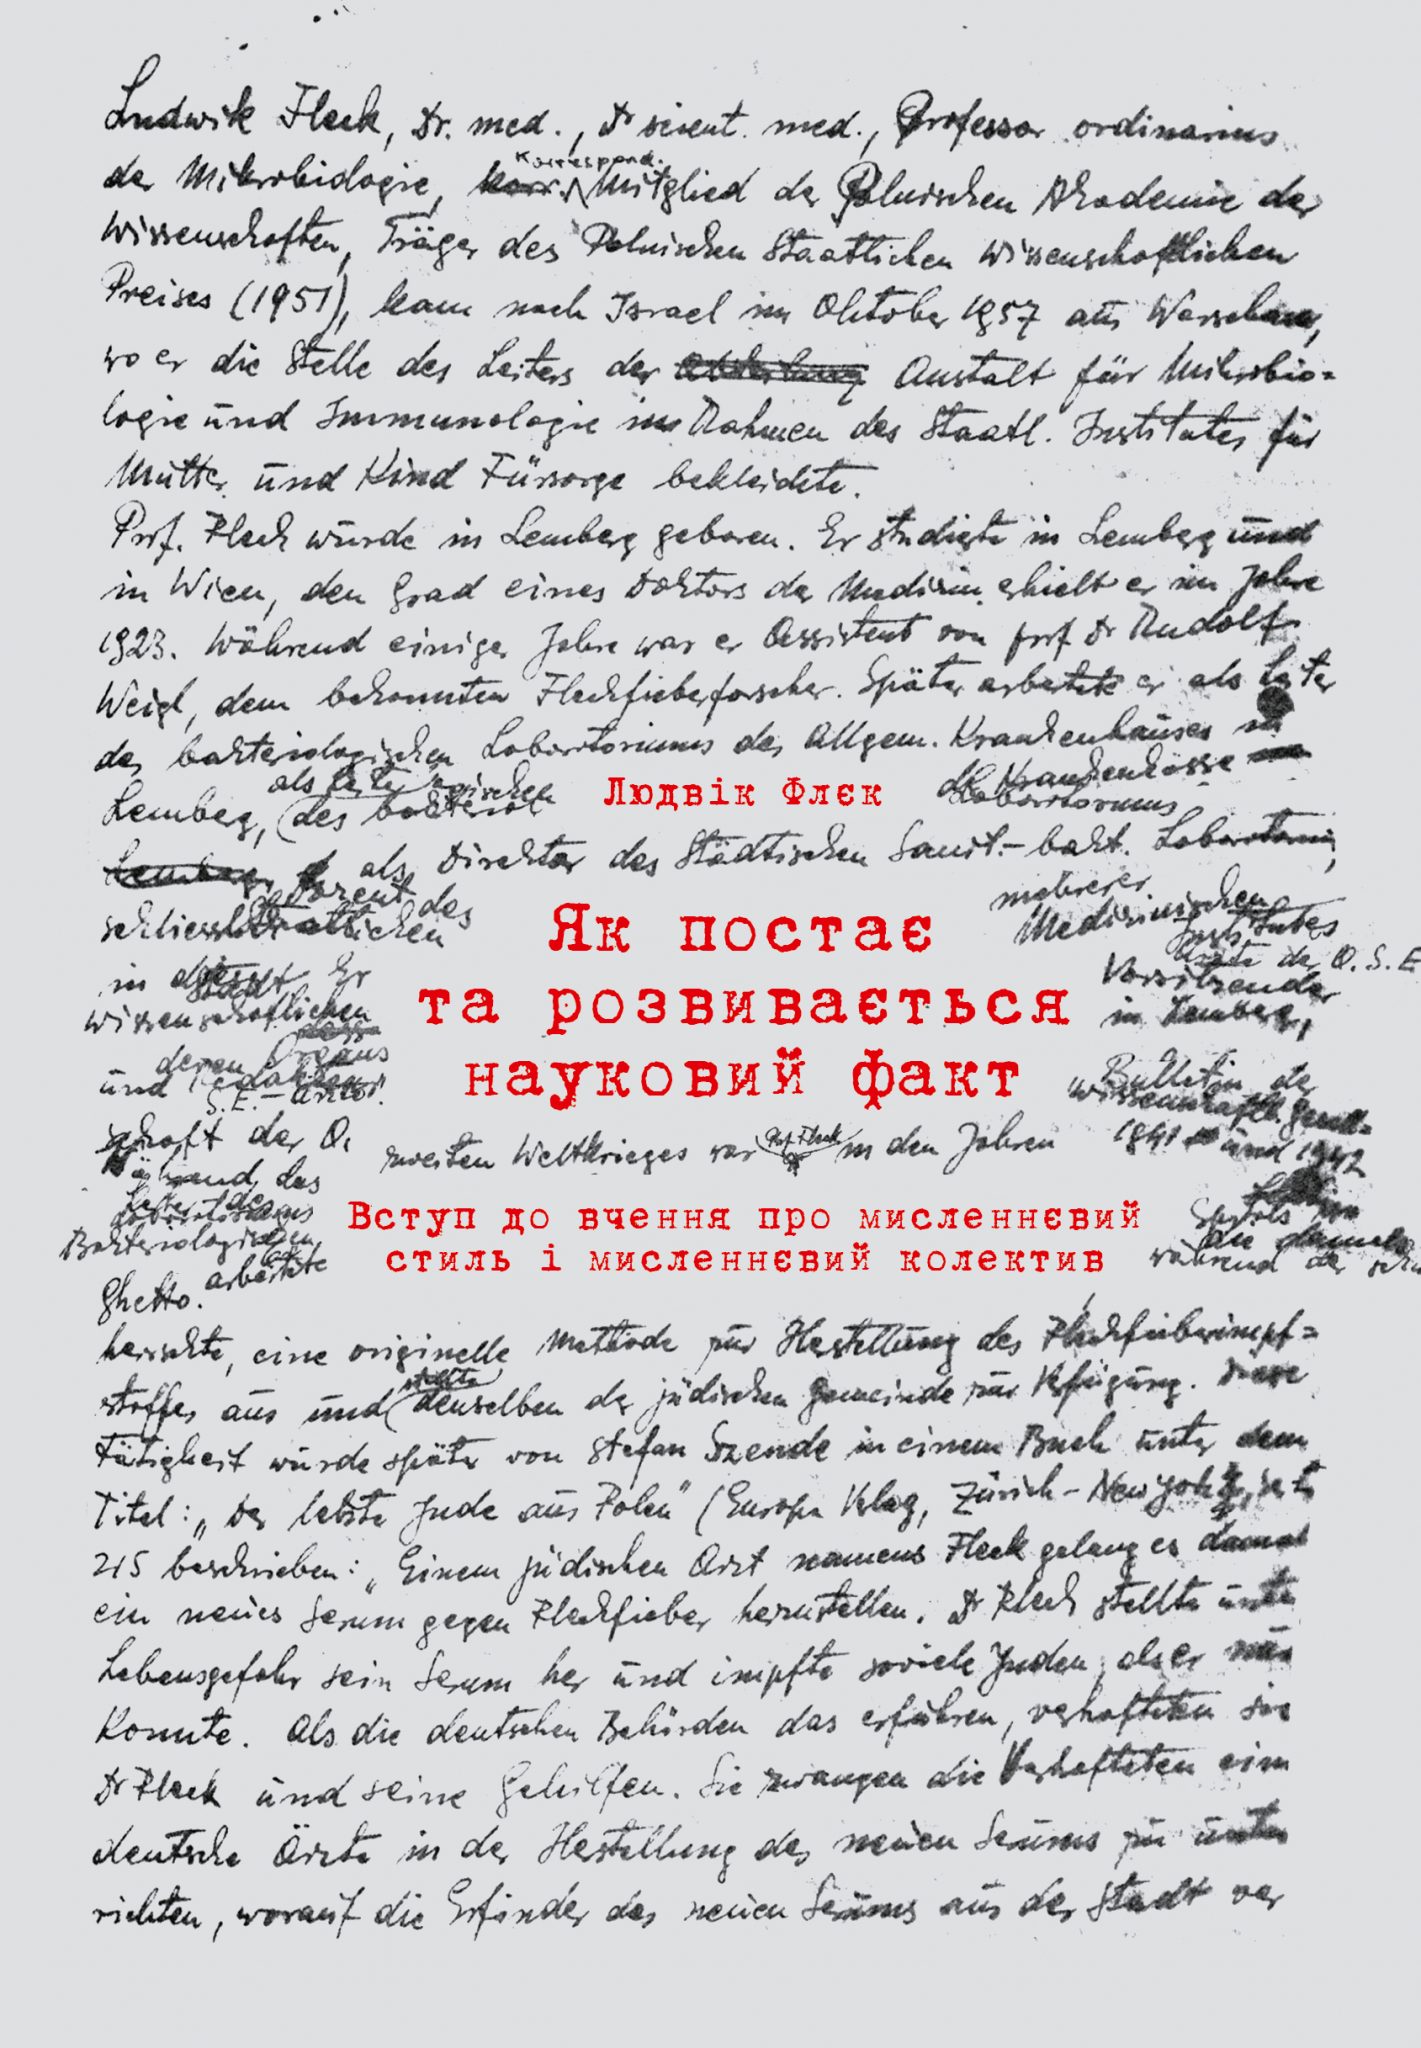 Ludwik Fleck, Dr. med., Dr scient. med., Professor ordinarius
der Mikrobiologie, Korrespond. Mitglied der Polnischen Akademie der
Wissenschaften, Träger des Polnischen Staatlichen Wissenschaftlichen
Preises (1951), kam nach Israel im Oktober 1957 aus Warschau,
wo er die Stelle des Leiters der Anstalt für Mikrobio=
logie und Immunologie im Rahmen des Staatl. Institutes für
Mutter und Kind Fürsorge bekleidete.
Prof. Fleck wurde in Lemberg geboren. Er studierte in Lemberg und
in Wien, den Grad eines Doktors der Medizin erhielt er im Jahre
1923. Während einiger Jahre war er Assistent von prof Dr Rudolf
Weigl, dem bekannten Fleckfieberforscher. Später arbeitete er als Leiter
des bakteriologischen Laboratoriums des Allgem. Krankenhauses in
als Leiter
Krankenkasse
Людвік Флєк
Laboratoriums
Lemberg, des
als Direktor des Städtischen Sanit.- bakt.
mehrerer
Medizinischen
des
Як постає
in
Er
der O. S. E
Vorsitzender
та розвивається
wissenschaftlichen
in Lemberg,
deren Organs
науковий факт
und
Bulletin der
S. E. -
schaft der O.
zweiten Weltkrieges war Prof. Fleck in den Jahren 1941 und 1942
während des
Вступ до вчення про мисленнєвий
Spitals
die damals
стиль і мисленнєвий колектив
während der
arbeitete
Ghetto.
herrschte, eine originelle Methode zur Herstellung des Fleckfieberimpf=
stoffes aus und stellte denselben der jüdischen Gemeinde zur Verfügung. Diese
Tätigkeit wurde später von Stefan Szende in einem Buch unter dem
Titel: „Der letzte Jude aus Polen" (Europa Verlag, Zürich - New York,
215 beschrieben: „Einem jüdischen Arzt namens Fleck gelang es damals
ein neues Serum gegen Fleckfieber herzustellen. Dr Fleck stellte unter
Lebensgefahr sein Serum her und impfte soviele Juden, als er nur
konnte. Als die deutschen Behörden das erfuhren, verhafteten sie
Dr Fleck und seine Gehilfen. Sie zwangen die Verhafteten
deutsche Ärzte in der Herstellung des neuen Serums zu unter
richten, worauf die Erfinder des neuen Serums aus der Stadt ver